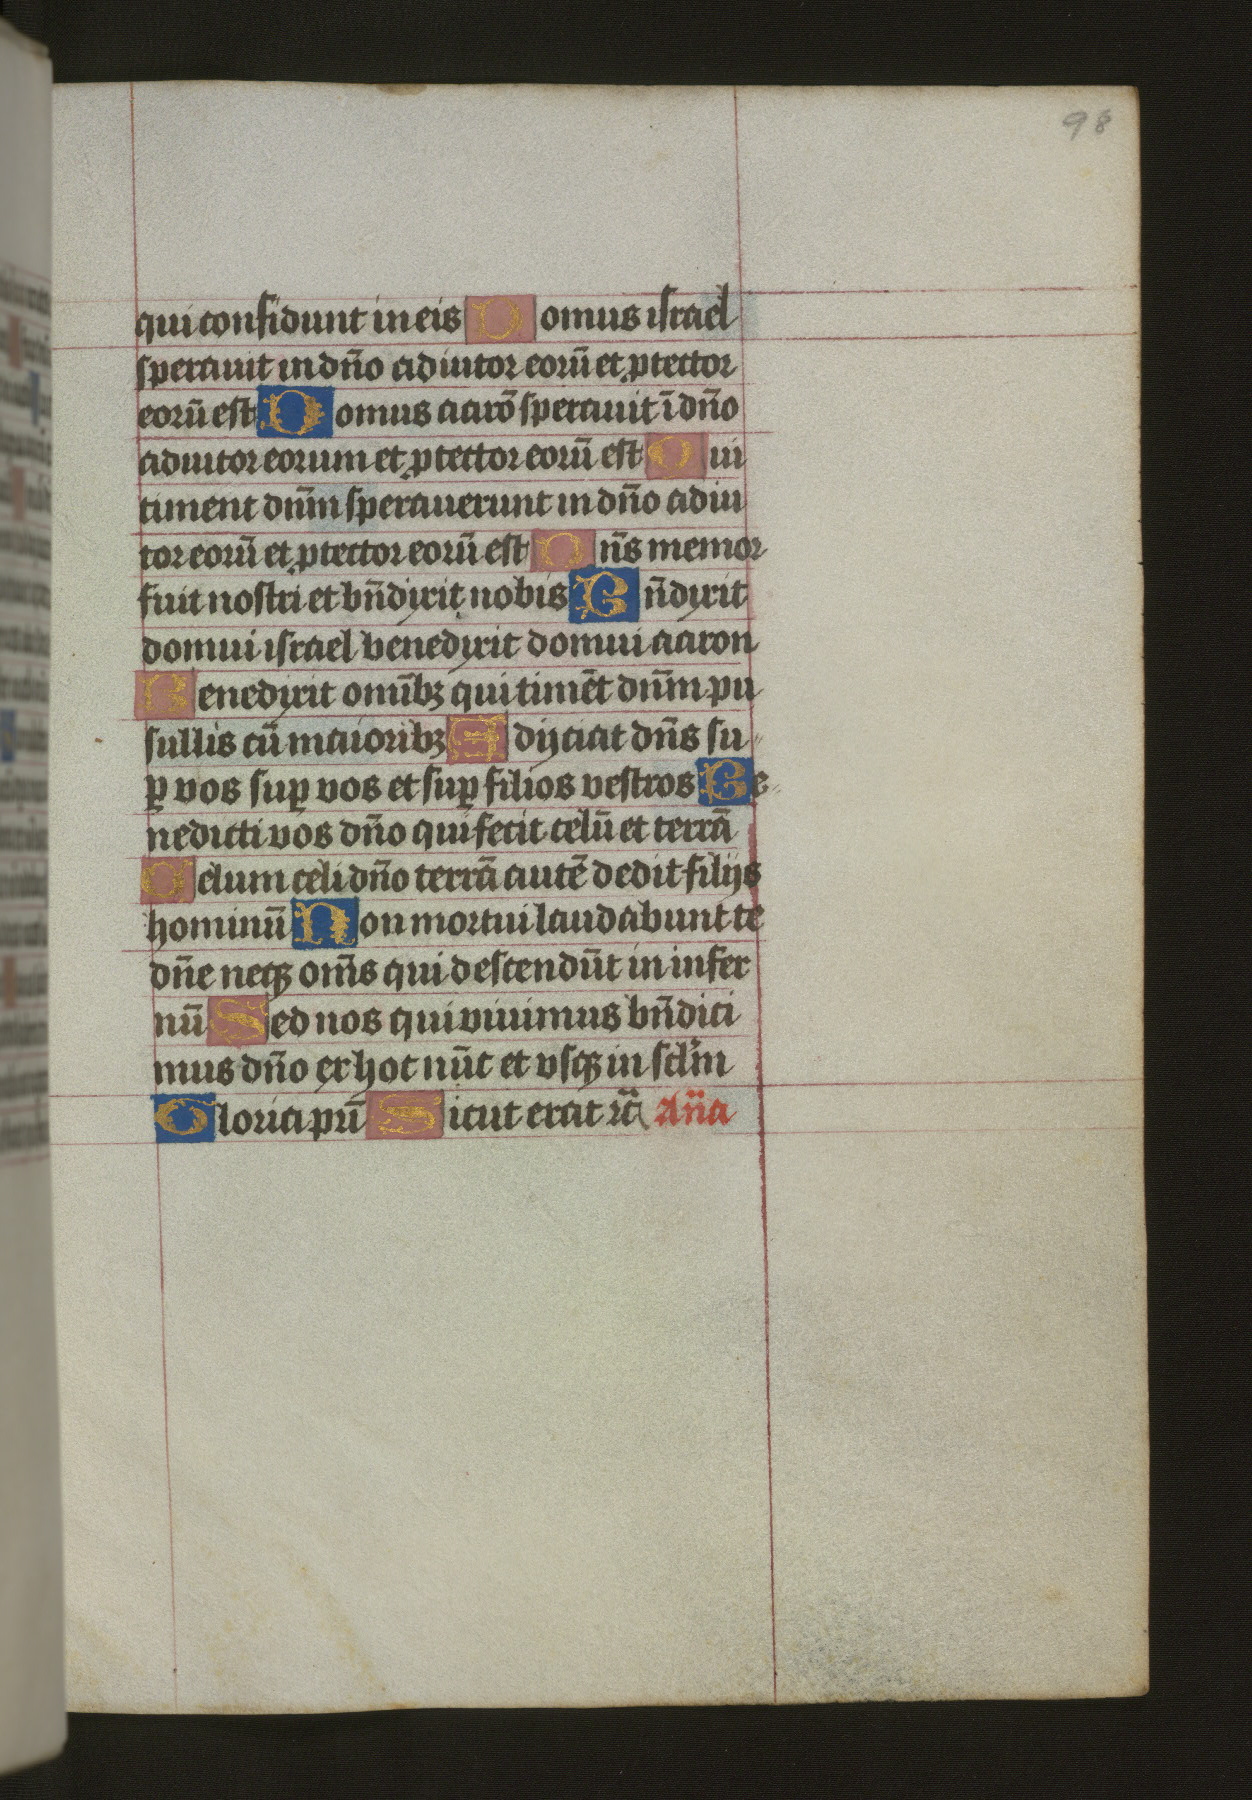 98
qui confidunt in eis Domus israel
sperauit in dn̄o adiutor eorū et ꝓtector
eorū est Domus aarō sperauit ī dn̄o
adiutor eorum et ꝓtector eorū est Qui
timent dn̄m sperauerunt in dn̄o adiu
tor eorū et ꝓtector eorū est Dn̄s memor
fuit nostri et bn̄dixit nobis Bn̄dixit
domui israel benedixit domui aaron
Benedixit omībꝫ qui timēt dn̄m pu
sillis cū maioribꝫ Adijciat dn̄s su
ꝑ vos suꝑ vos et suꝑ filios vestros Be
nedicti vos dn̄o qui fecit celū et terrā
Celum celi dn̄o terrā autē dedit filijs
hominū Non mortui laudabunt te
dn̄e neqꝫ om̄s qui descendūt in infer
nū Sed nos qui viuimus bn̄dici
mus dn̄o ex hoc nūc et vsqꝫ in sc̄lm
Gloria pr̄i Sicut erat ⁊c̄ An̄a